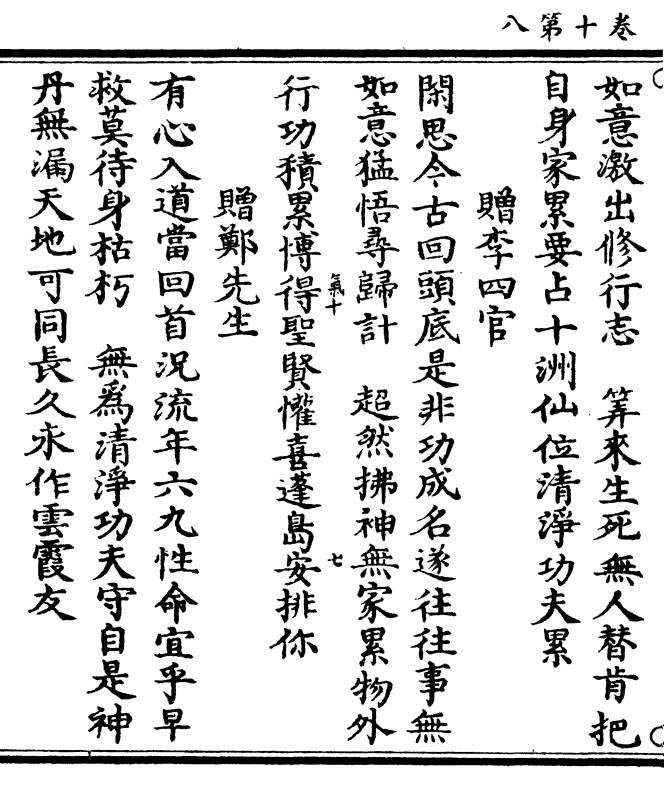 卷十第八
如意激出修行志　筭來生死無人替肯把
自身家累要占十洲仙位清淨功夫累
贈李四官
閑思今古回頭底是非功成名遂往往事無
如意猛悟尋歸計　超然拂神無家累物外
氣十
七
行功積累博得聖賢懽喜蓬島安排你
贈鄭先生
有心入道當回首況流年六九性命宜乎早
救莫待身枯朽　無爲清淨功夫守自是神
丹無漏天地可同長久永作雲霞友